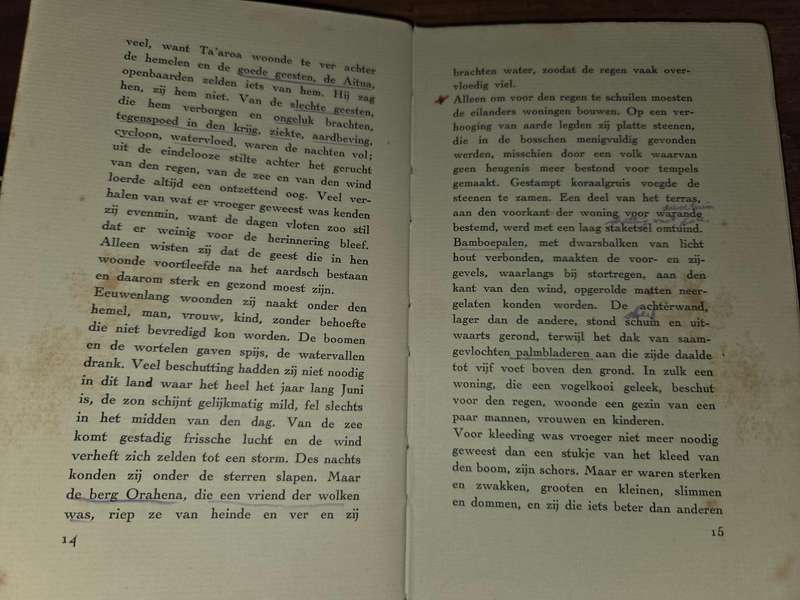 veel, want Ta'aroa woonde te ver achter
de hemelen en de goede geesten, de Aitua,
openbaarden zelden iets van hem. Hij zag
hen, zij hem niet. Van de slechte geesten,
die hem verborgen en ongeluk brachten,
tegenspoed in den krijg, ziekte, aardbeving,
cycloon, watervloed, waren de nachten vol;
uit de eindelooze stilte achter het gerucht
van den regen, van de zee en van den wind
loerde altijd een ontzettend oog. Veel ver-
halen van wat er vroeger geweest was kenden
zij evenmin, want de dagen vloten zoo stil
dat er weinig voor de herinnering bleef.
Alleen wisten zij dat de geest die in hen
woonde voortleefde na het aardsch bestaan
en daarom sterk en gezond moest zijn.
Eeuwenlang woonden zij naakt onder den
hemel, man, vrouw, kind, zonder behoefte
die niet bevredigd kon worden. De boomen
en de wortelen gaven spijs, de watervallen
drank. Veel beschutting hadden zij niet noodig
in dit land waar het heel het jaar lang Juni
is, de zon schijnt gelijkmatig mild, fel slechts
in het midden van den dag. Van de zee
komt gestadig frissche lucht en de wind
verheft zich zelden tot een storm. Des nachts
konden zij onder de sterren slapen. Maar
de berg Orahena, die een vriend der wolken
was, riep ze van heinde en ver en zij
14
brachten water, zoodat de regen vaak over-
vloedig viel.
Alleen om voor den regen te schuilen moesten
de eilanders woningen bouwen. Op een ver-
hooging van aarde legden zij platte steenen,
die in de bosschen menigvuldig gevonden
werden, misschien door een volk waarvan
geen heugenis meer bestond voor tempels
gemaakt. Gestampt koraalgruis voegde de
steenen te zamen. Een deel van het terras,
aan den voorkant der woning voor warande
bestemd, werd met een laag staketsel omtuind.
Bamboepalen, met dwarsbalken van licht
hout verbonden, maakten de voor- en zij-
gevels, waarlangs bij stortregen, aan den
kant van den wind, opgerolde matten neer-
gelaten konden worden. De achterwand,
lager dan de andere, stond schuin en uit-
waarts gerond, terwijl het dak van saam-
gevlochten palmbladeren aan die zijde daalde
tot vijf voet boven den grond. In zulk een
woning, die een vogelkooi geleek, beschut
voor den regen, woonde een gezin van een
paar mannen, vrouwen en kinderen.
Voor kleeding was vroeger niet meer noodig
geweest dan een stukje van het kleed van
den boom, zijn schors. Maar er waren sterken
en zwakken, grooten en kleinen, slimmen
en dommen, en zij die iets beter dan anderen
15